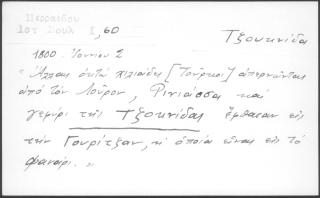 Περραιβού
Ιστ Σουλ I, 60
Τζουκνίδα
1800. Ιουνίου 2
"Άλλαι οκτώ χιλιάδες [Τούρκοι] απερνώντας
από τον Λούρον, Ρινιάσσα και
γεφύρι της Τζουκνίδας έμβασαν εις
την Γουρίτζαν, η οποία είναι εις το
φανάρι."